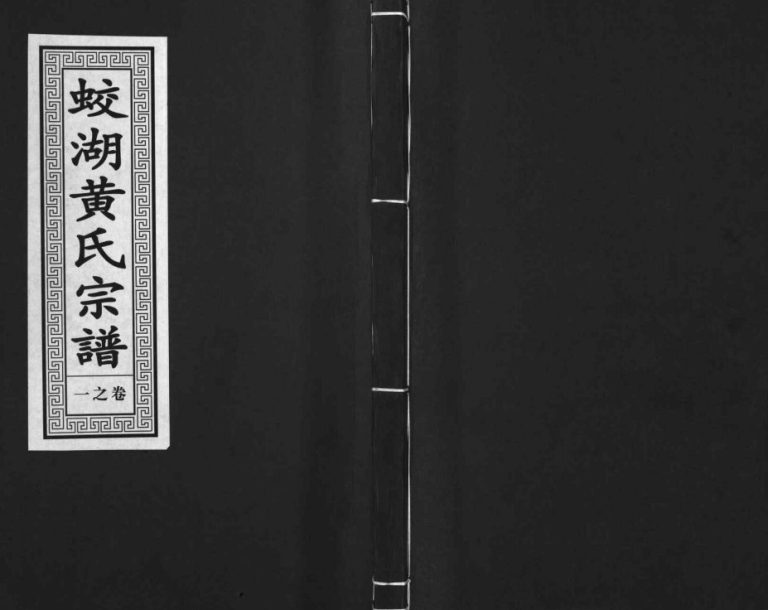 蛟湖黄氏宗譜
卷之一